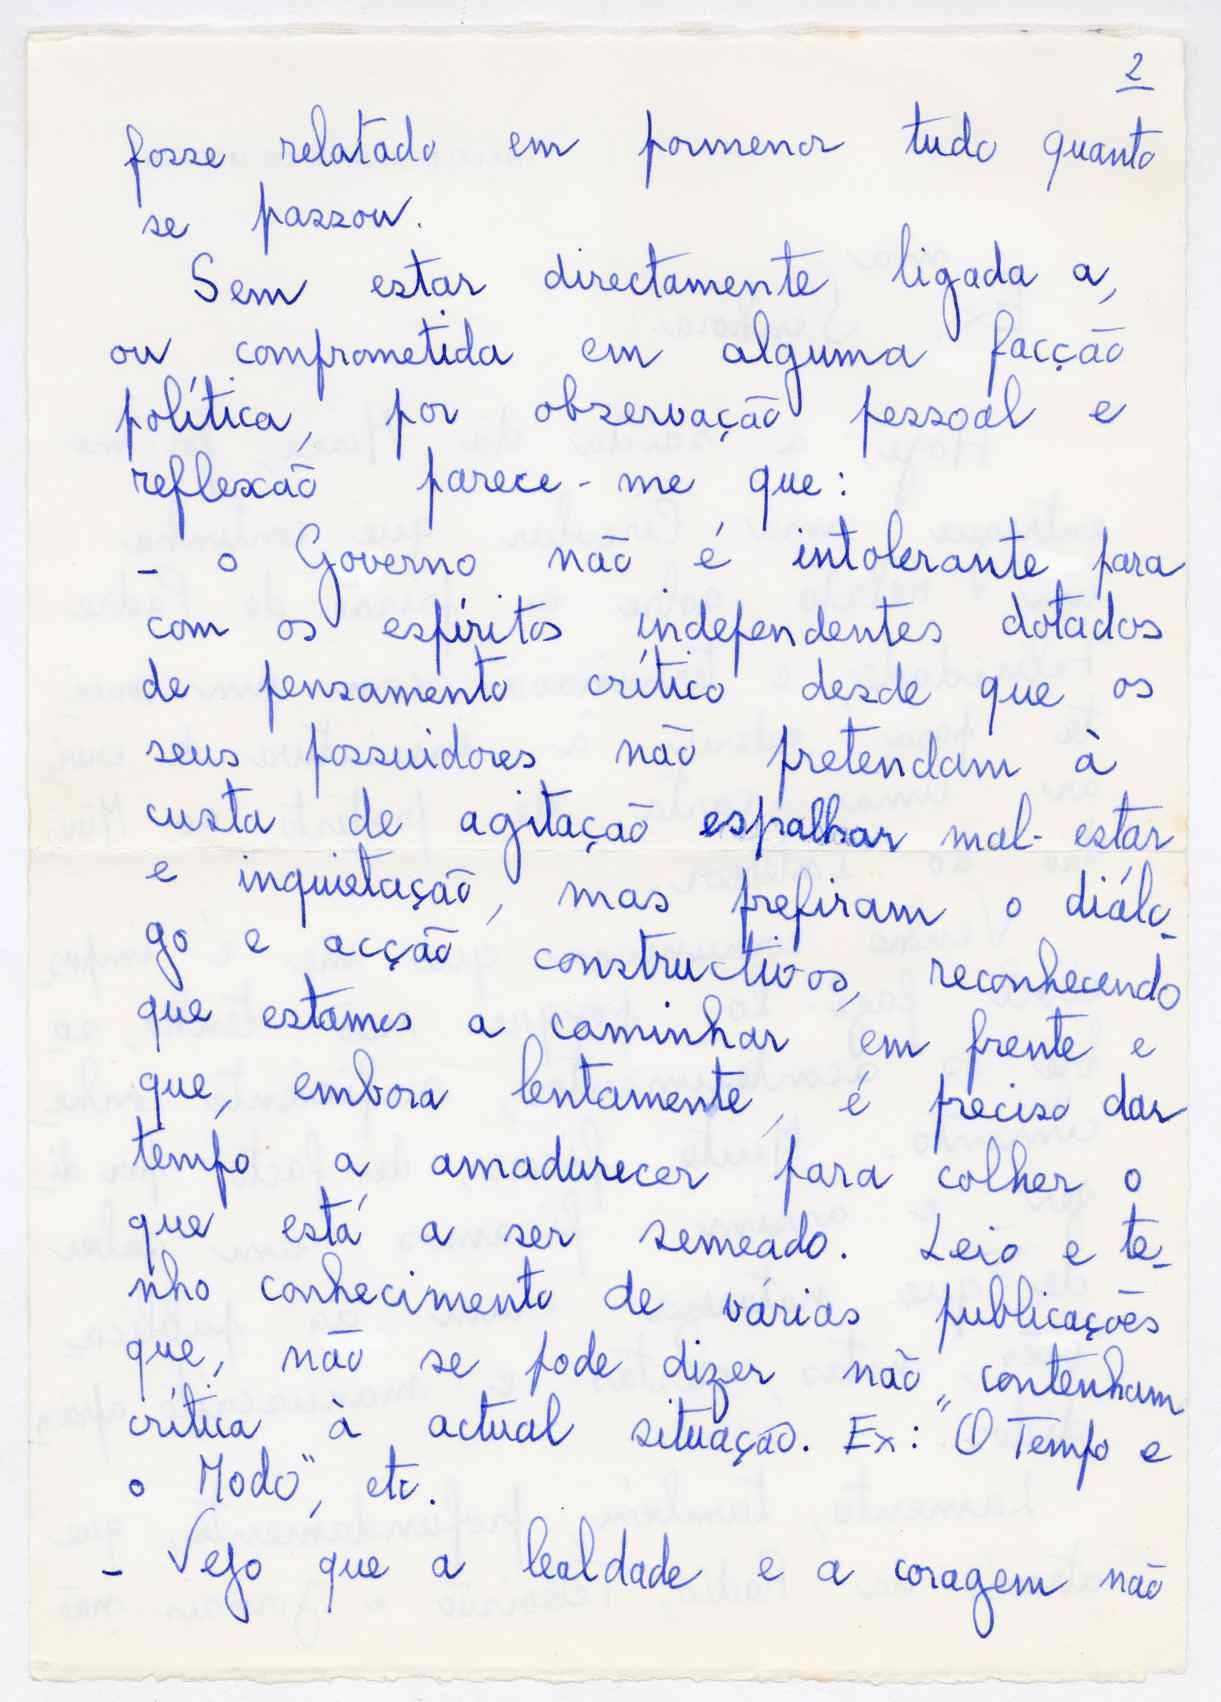 2
fosse relatado em pormenor tudo quanto
se passou.
Sem estar directamente ligada a,
ou comprometida em alguma facção
política, por observação pessoal e
reflexão parece-me que:
- o Governo não é intolerante para
com os espíritos independentes dotados
de pensamento crítico desde que os
seus possuidores não pretendam à
custa de agitação espalhar mal-estar
e inquietação, mas prefiram o diálo-
go e acção constructivos, reconhecendo
que estamos a caminhar em frente e
que, embora lentamente, é preciso dar
tempo a amadurecer para colher o
que está a ser semeado. Leio e te-
nho conhecimento de várias publicações
que, não se pode dizer não contenham
crítica à actual situação. Ex: "O Tempo e
o Modo", etc.
- Vejo que a lealdade e a coragem não